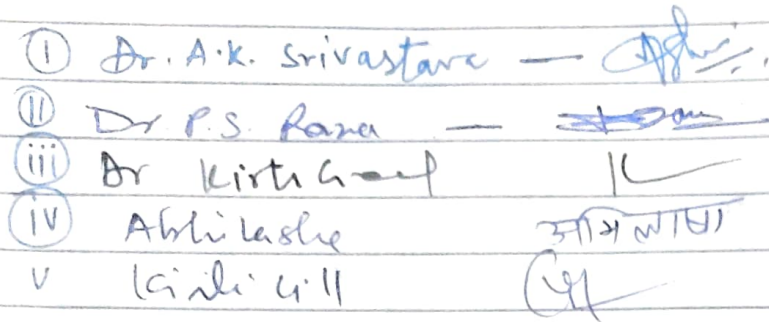 (i) Dr. A.K. Srivastava —
(ii) Dr P.S. Rana —
(iii) Dr Kirti Goel
(iv) Abhilasha अभिलाषा
v Gill